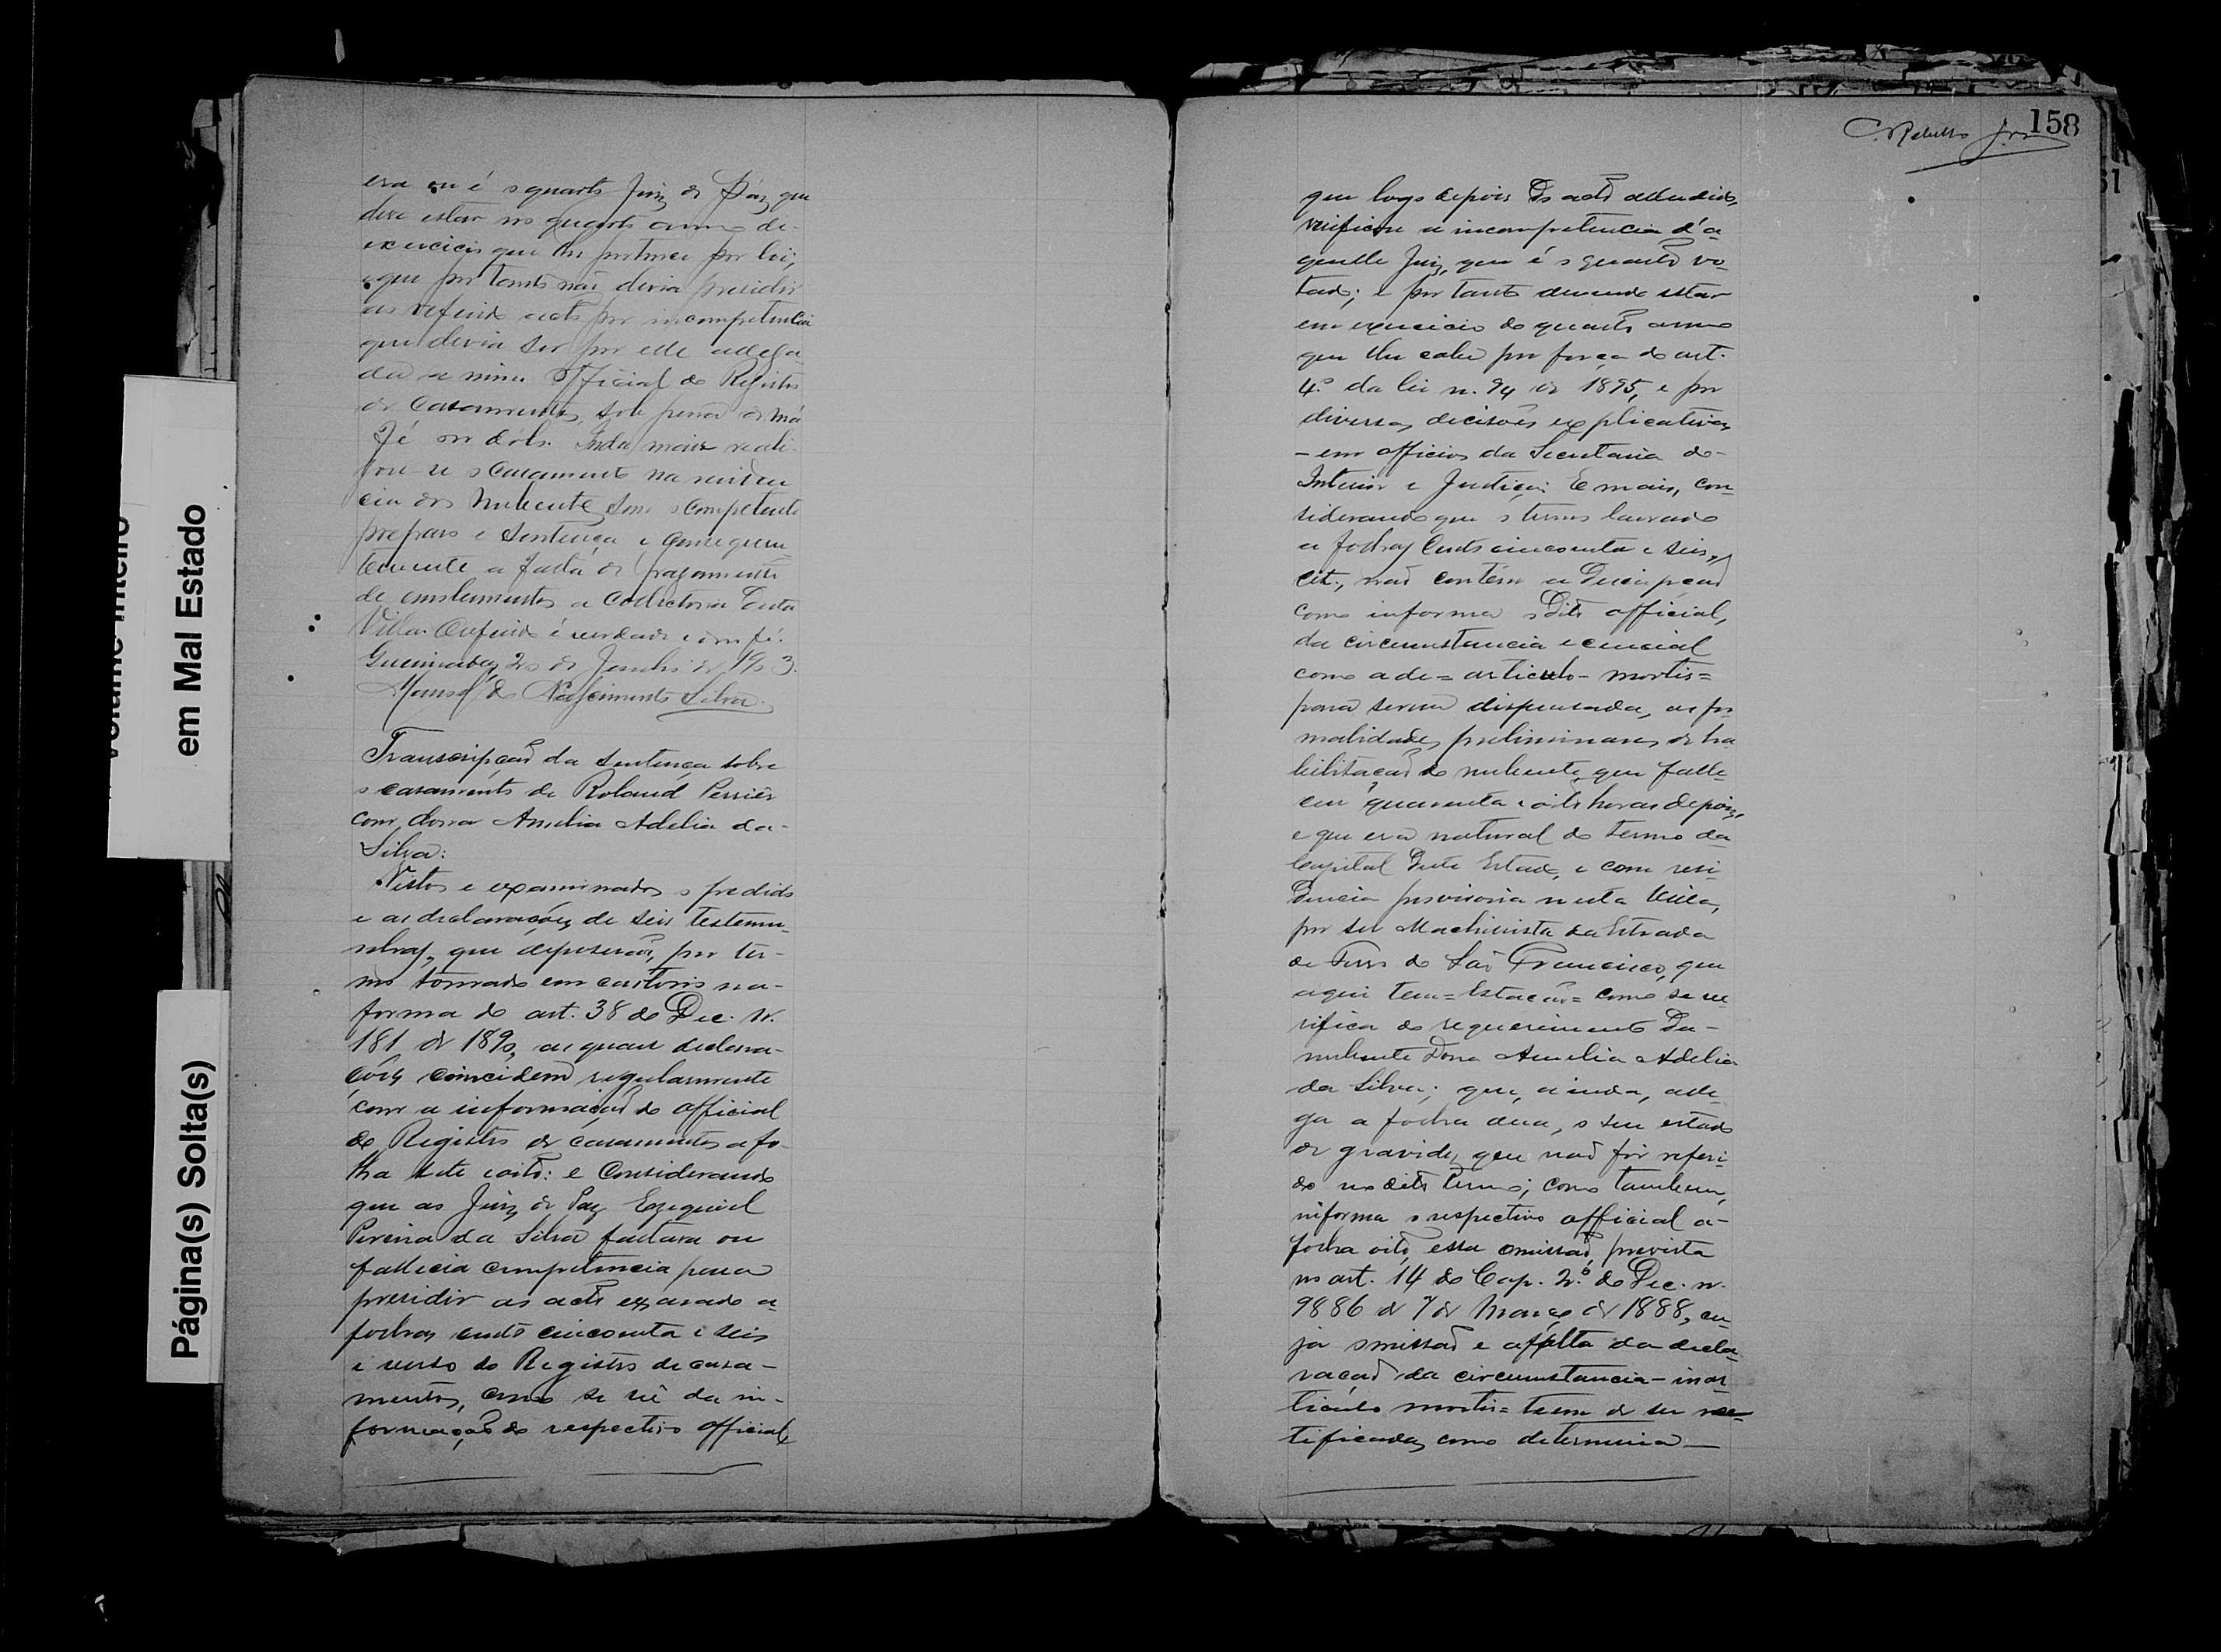 era ou é o quarto Juiz de Paz que
deve estar no quarto anno de
exercicio que lhe pertence por lei,
e que por tanto não devia presidir
ao referido acto por incompetencia
que devia ser por elle allega-
da a mim Official do Registro
de Casamentos, sob pena de má
fé ou dólo. Inda mais reali-
zou-se o casamento na residen-
cia dos nubente sem o competente
preparo e sentença e consequen-
temente a falta de pagamento
de emolumentos a Collectoria desta
Villa. O referido é verdade e dou fé.
Queimadas, 20 de Junho de 1903.
Manoel do Nascimento Silva.
Transcripção da sentença sobre
o casamento de Roland Perrier
com dona Amelia Adelia da
Silva:
Vistos e examinados o pedido
e as declarações de seis testemu-
nhas, que deposerão, por ter-
mo tomado em cartorio na
forma do art. 38 do Dec. N.
181 de 1890, as quaes declara-
ções coincidem regularmente
com a informação do official
do Registro de casamentos a fo-
lha sete e oito: e Considerando
que ao Juiz de Paz Ezequiel
Pereira da Silva faltava ou
fallecia competencia para
presidir ao acto exarado a
folhas cento cincoenta e seis
e verso do Registro de casa-
mentos, como se vê da in-
formação do respectivo official,
158
que logo depois do acto alludido,
verificou a incompetencia d'a-
quelle Juiz, que é o quarto vo-
tado; e por tanto devendo estar
em exercicio do quarto anno
que lhe cabe por força do art.
4.º da lei n. 94 de 1895, e por
diversas decisões explicativas
- em officios da Secretaria do
Interior e Justiça: E mais, con-
siderando que o termo lavrado
a folhas cento cincoenta e seis,
cit., não contém a descripção
como informa o dito official,
da circumstancia essencial
como a de = articulo - mortis =
para serem dispensada, as for-
malidades preliminares de ha-
bilitação do nubente, que falle-
ceu quarenta e oito horas depois,
e que era natural do termo da
Capital deste Estado, e com resi-
dencia provisoria nesta Villa,
por ser Machinista da Estrada
de Ferro do São Francisco, que
aqui tem = Estação = como se ve-
rifica do requerimento da
nubente Dona Amelia Adelia
da Silva; que, ainda, alle-
ga a folha duas, o seu estado
de gravidez, que não foi referi-
do no dito termo; como tambem,
informa o respectivo official a
folha oito, essa omissão, prevista
no art. 14 do Cap. 2.º do Dec. n.
9886 de 7 de Março de 1888, cu-
ja omissão e a falta da decla-
ração da circumstancia - in ar-
ticulo mortis = teem de ser rec-
tificadas, como determina
em Mal Estado
Página(s) Solta(s)